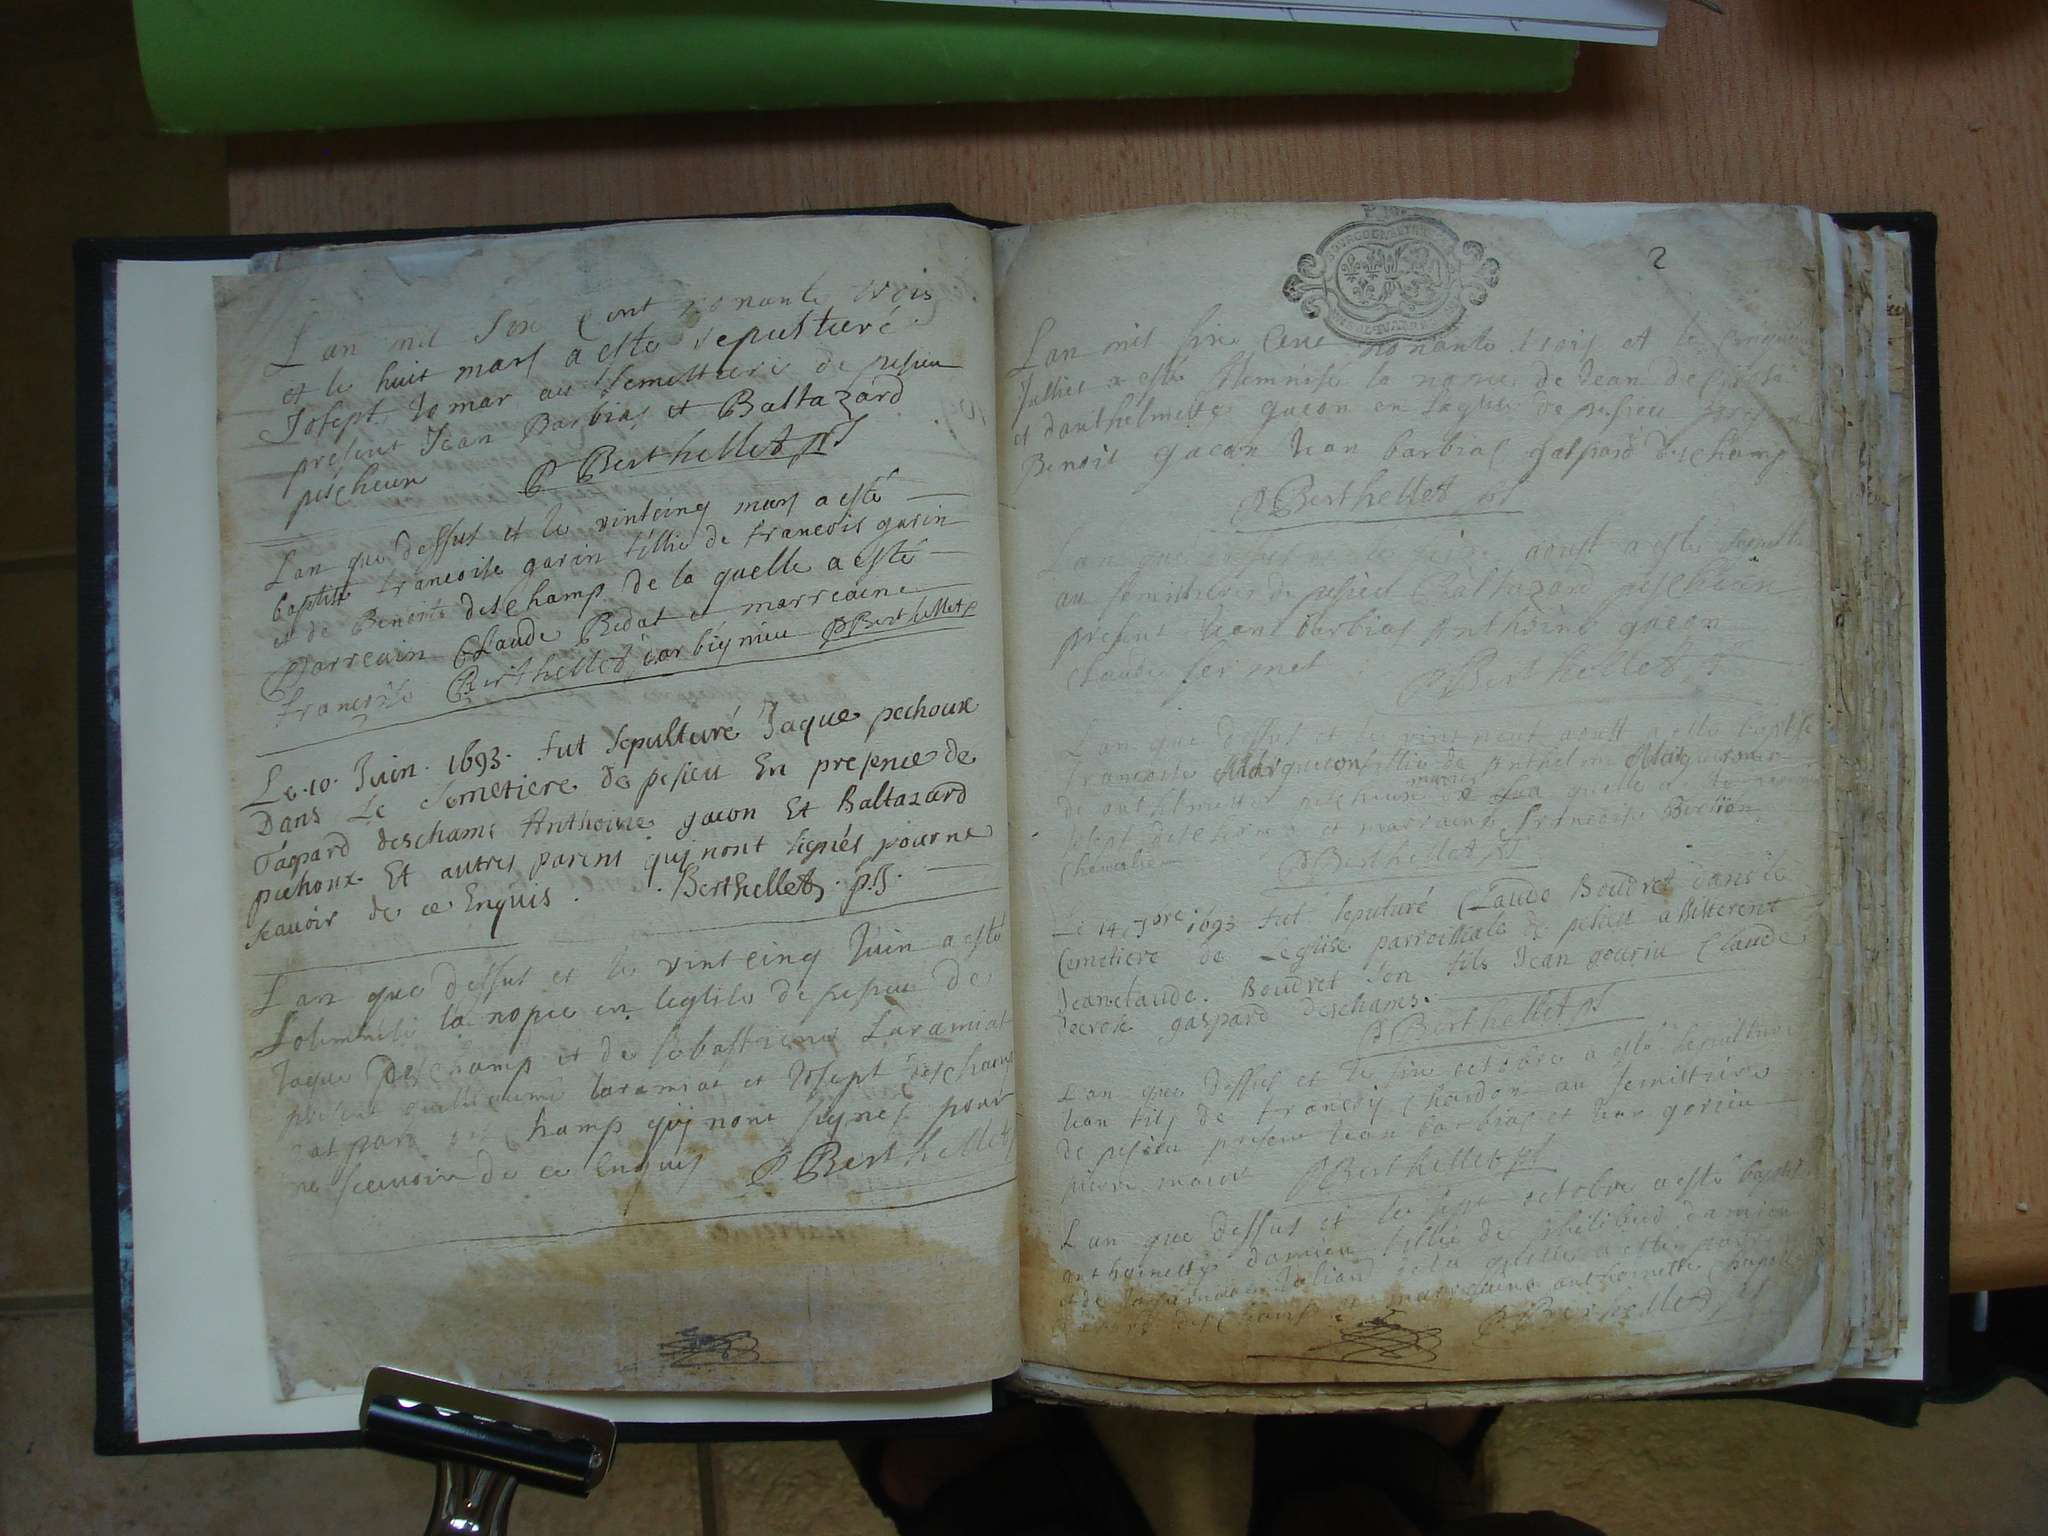 L an mil six Cent nonante trois
et le huit mars a esté sepulturé
Josept Jomar au semettiere de pesieu
present Jean Barbias et Baltazard
pescheux P Berthellet pt
L an que dessus et le vintcinq mars a esté
baptisé francoise garin fillie de francois garin
et de Benoite deschamp de la quelle a esté
parreain Claude Bedat et marreaine
francoise Berthellet P Berthellet p
Le 10 Juin 1693 fut sepulturé Jaque pechoux
Dans Le semetiere de pesieu En presence de
Gaspard deschams Anthoine gacon Et Baltazard
pechoux Et autres parens qui nont signés pour ne
scavoir de ce Enquis . Berthellet . pt .
L an que dessus et le vintcinq Juin a esté
solemnisé la nopce en leglise de pesieu de
Jaque Deschamp et de sebastiene Laramiat
present guilliaume laramiat et Josept deschamp
gaspard deschamp qui nont signes pour
ne scavoir de ce enquis P Berthellet
2
L an mil six Cent nonante trois et le cinquie
Julliet a esté solemnisé la nopce de Jean
et danthelmette gacon en leglise de pesieu present
Benoit gacon Jean barbias gaspard deschamp
P Berthellet pt
L an que dessus et le aoust a esté
au semettiere de pesieu Baltazard pescheux
present Jean barbias anthoine gacon
claude fermet P Berthellet pt
L an que dessus et le vint neuf aoust a esté baptise
francoise Margueron fillie de Anthelme Margueron
de anthelmette pescheux la quelle a
Josept deschamp et marraine francoise
P Berthellet pt
Le 14 7bre 1693 fut sepulturé Claude Boudret dans le
Cemetiere de Leglise parroissiale de pesieu assisterent
Jeanclaude Boudret son fils Jean Claude
gaspard deschams.
P Berthellet pt
L an que dessus et le six octobre a esté sepulturé
Jean fils de francois Chardon au semettiere
de pesieu present Jean barbias et Jean
pierre P Berthellet pt
L an que dessus et le sept octobre a esté baptisé
anthoinette damien fillie de philibert damien
et de la quelle a esté parrain
deschamp et marraine anthoinette
P Berthellet pt